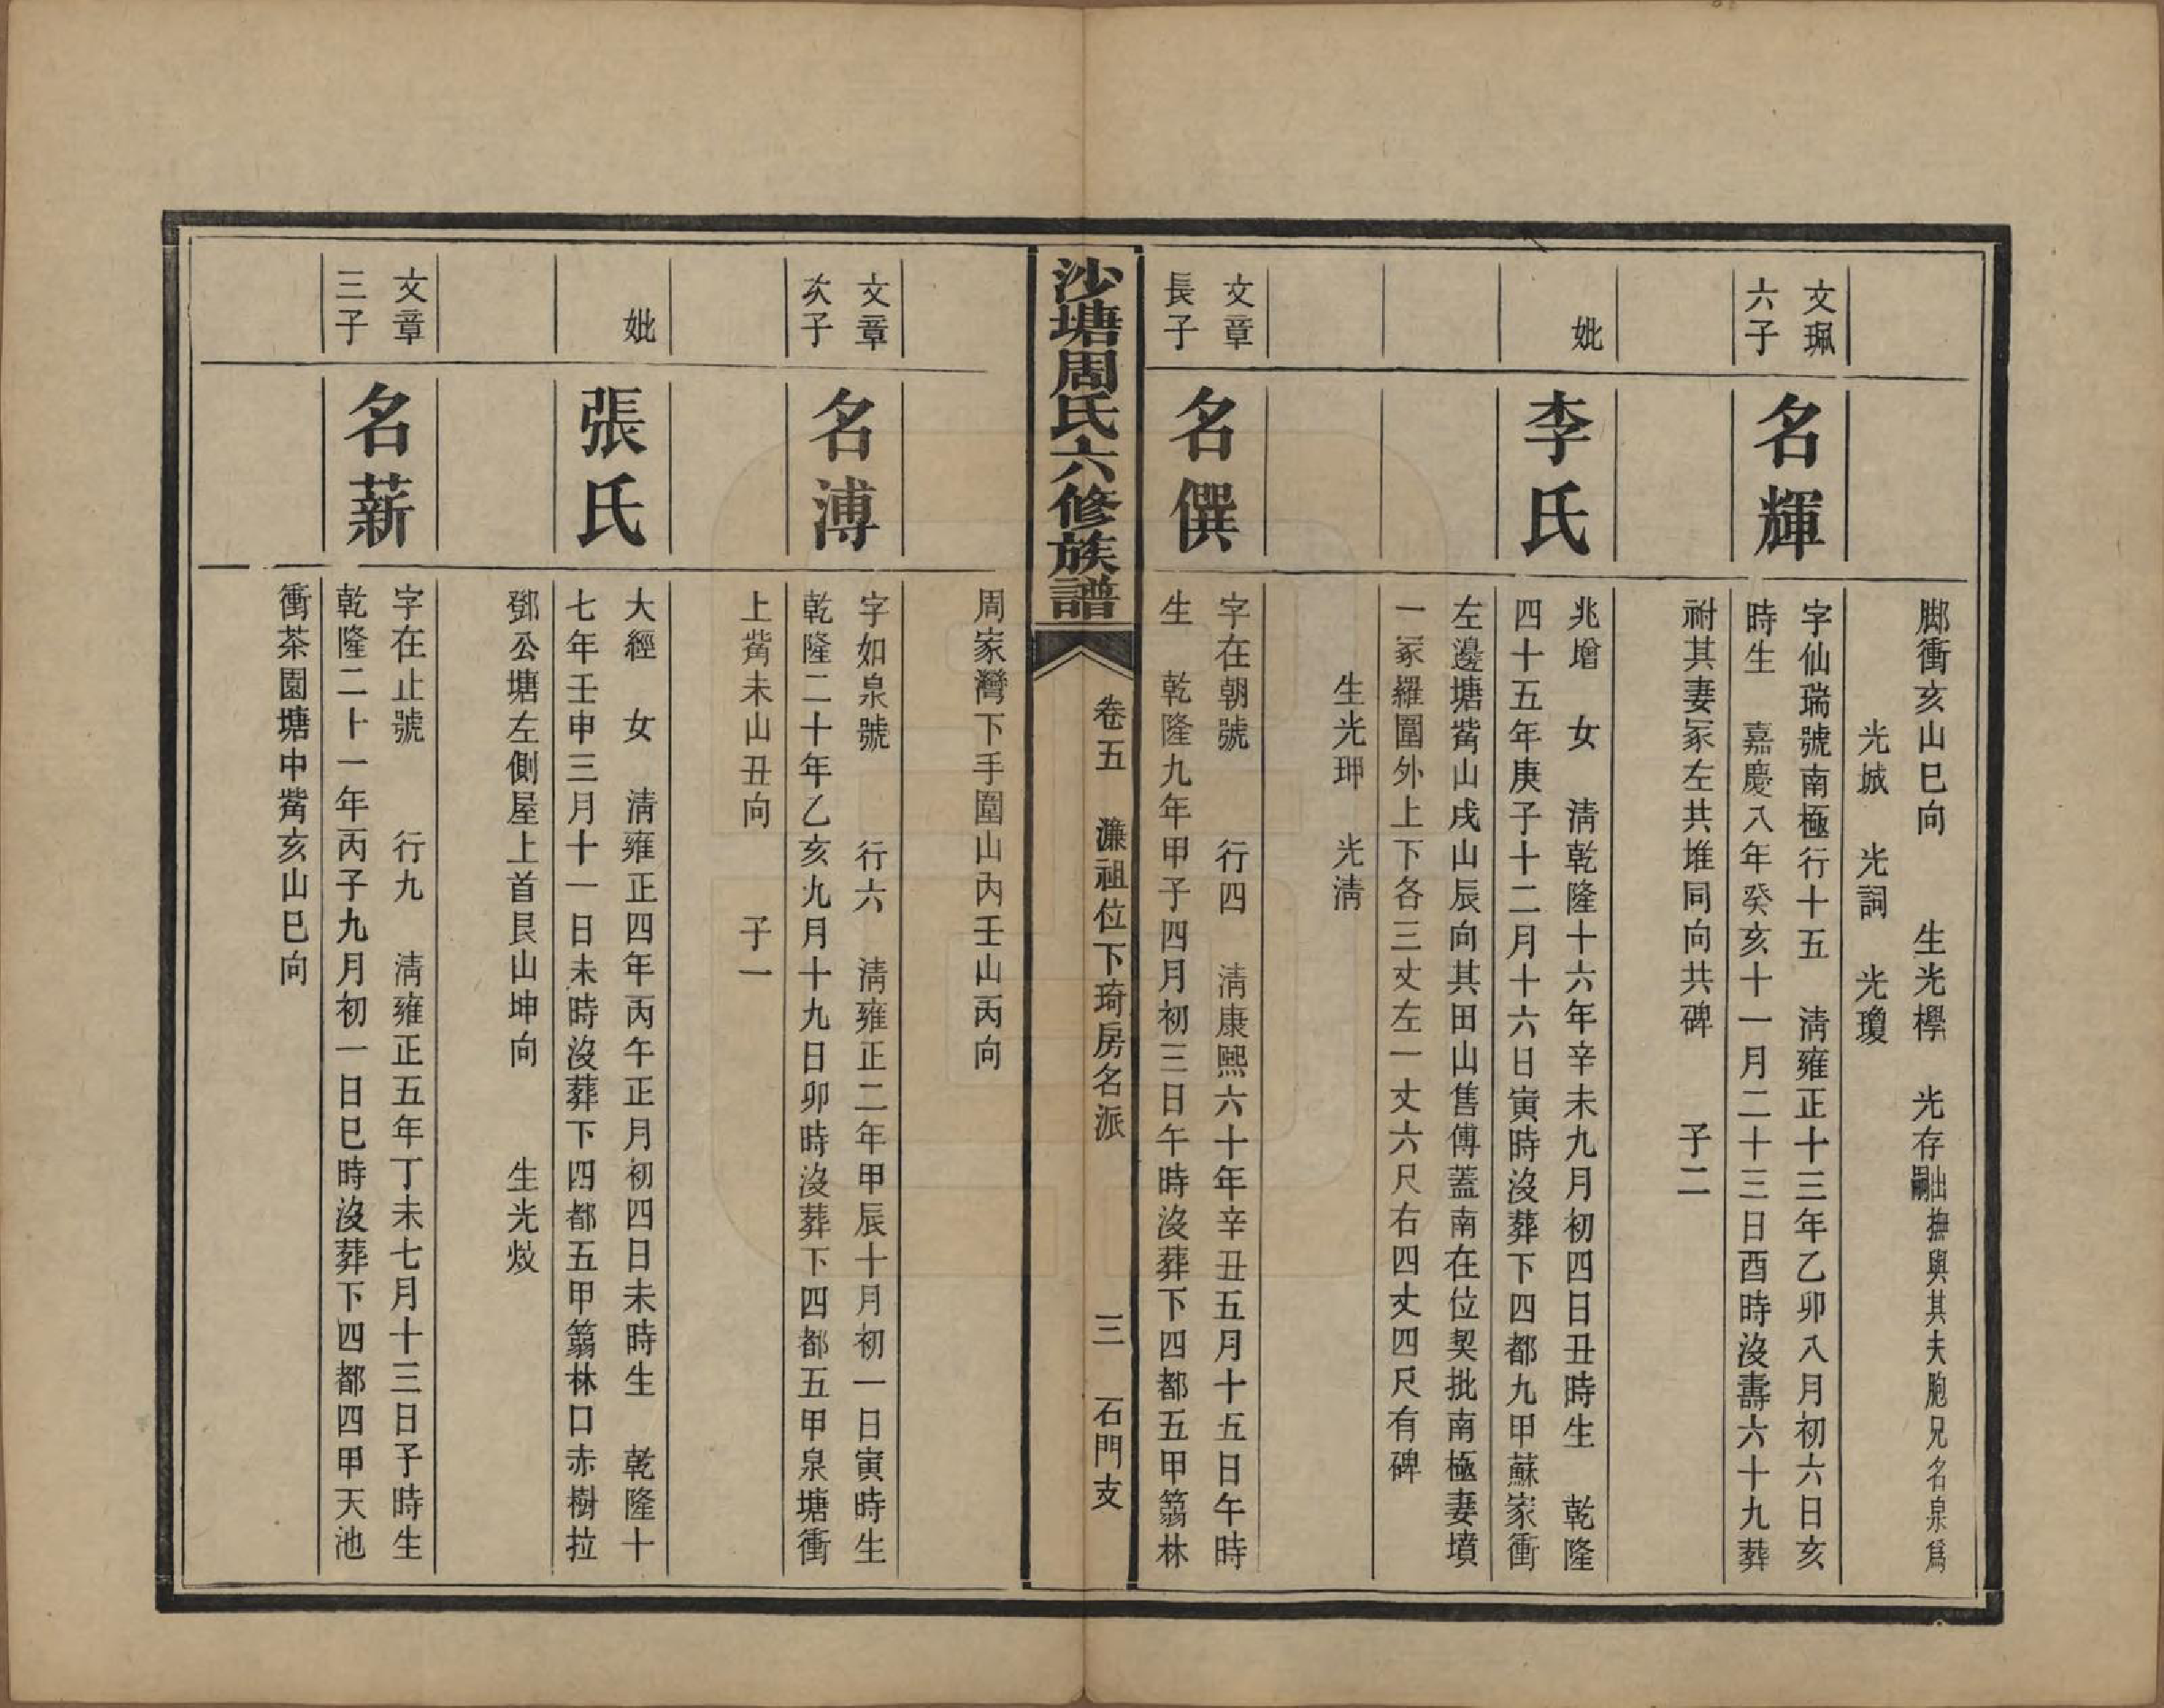 脚衝亥山巳向　　生光㰒　光存出撫與其夫胞兄名泉爲嗣
光城　光詞　光瓊
文珮六子
名輝
字仙瑞號南極行十五　清雍正十三年乙卯八月初六日亥
時生　嘉慶八年癸亥十一月二十三日酉時沒壽六十九葬
祔其妻冢左共堆同向共碑　　子二
妣
李氏
兆增　女　清乾隆十六年辛未九月初四日丑時生　乾隆
四十五年庚子十二月十六日寅時沒葬下四都九甲蘇家衝
左邊塘觜山戌山辰向其田山售傅蓋南在位契批南極妻墳
一冢羅圍外上下各三丈左一丈六尺右四丈四尺有碑
生光珋　光清
文章長子
名僎
字在朝號　　行四　清康熙六十年辛丑五月十五日午時
生　乾隆九年甲子四月初三日午時沒葬下四都五甲篛林
沙塘周氏六修族譜
卷五　濂祖位下琦房名派
三　石門支
周家灣下手圍山內壬山丙向
文章次子
名溥
字如泉號　　行六　清雍正二年甲辰十月初一日寅時生
乾隆二十年乙亥九月十九日卯時沒葬下四都五甲泉塘衝
上觜未山丑向　　子一
妣
張氏
大經　女　清雍正四年丙午正月初四日未時生　乾隆十
七年壬申三月十一日未時沒葬下四都五甲篛林口赤樹拉
鄧公塘左側屋上首艮山坤向　　生光㷖
文章三子
名薪
字在止號　　行九　清雍正五年丁未七月十三日子時生
乾隆二十一年丙子九月初一日巳時沒葬下四都四甲天池
衝茶園塘中觜亥山巳向